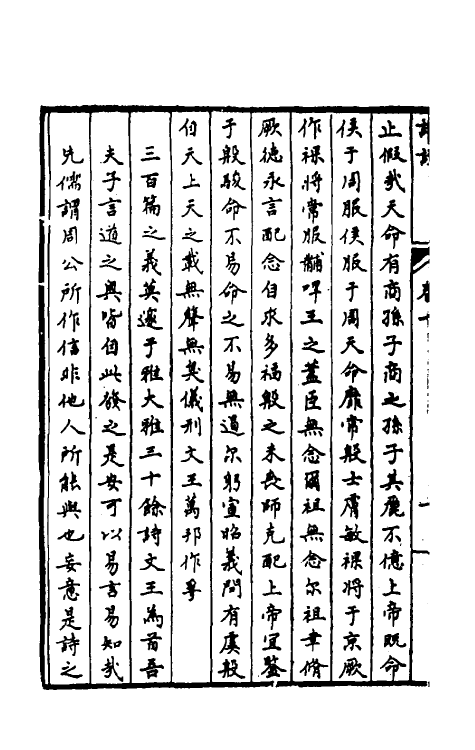 止假哉天命有商孫子商之孫子其麗不億上帝既命
侯于周服侯服于周天命靡常殷士膚敏祼將于京厥
作祼將常服黼冔王之藎臣無念爾祖無念尔祖聿脩
厥德永言配念自求多福殷之未喪師克配上帝宜鍳
于殷駿命不易命之不易無遏尔躬宣昭義問有虞殷
自天上天之載無聲無臭儀刑文王萬邦作孚
三百篇之義莫邃于雅大雅三十餘詩文王為首吾
夫子言道之與皆自此發之是安可以易言易知哉
先儒謂周公所作信非他人所能與也妄意是詩之